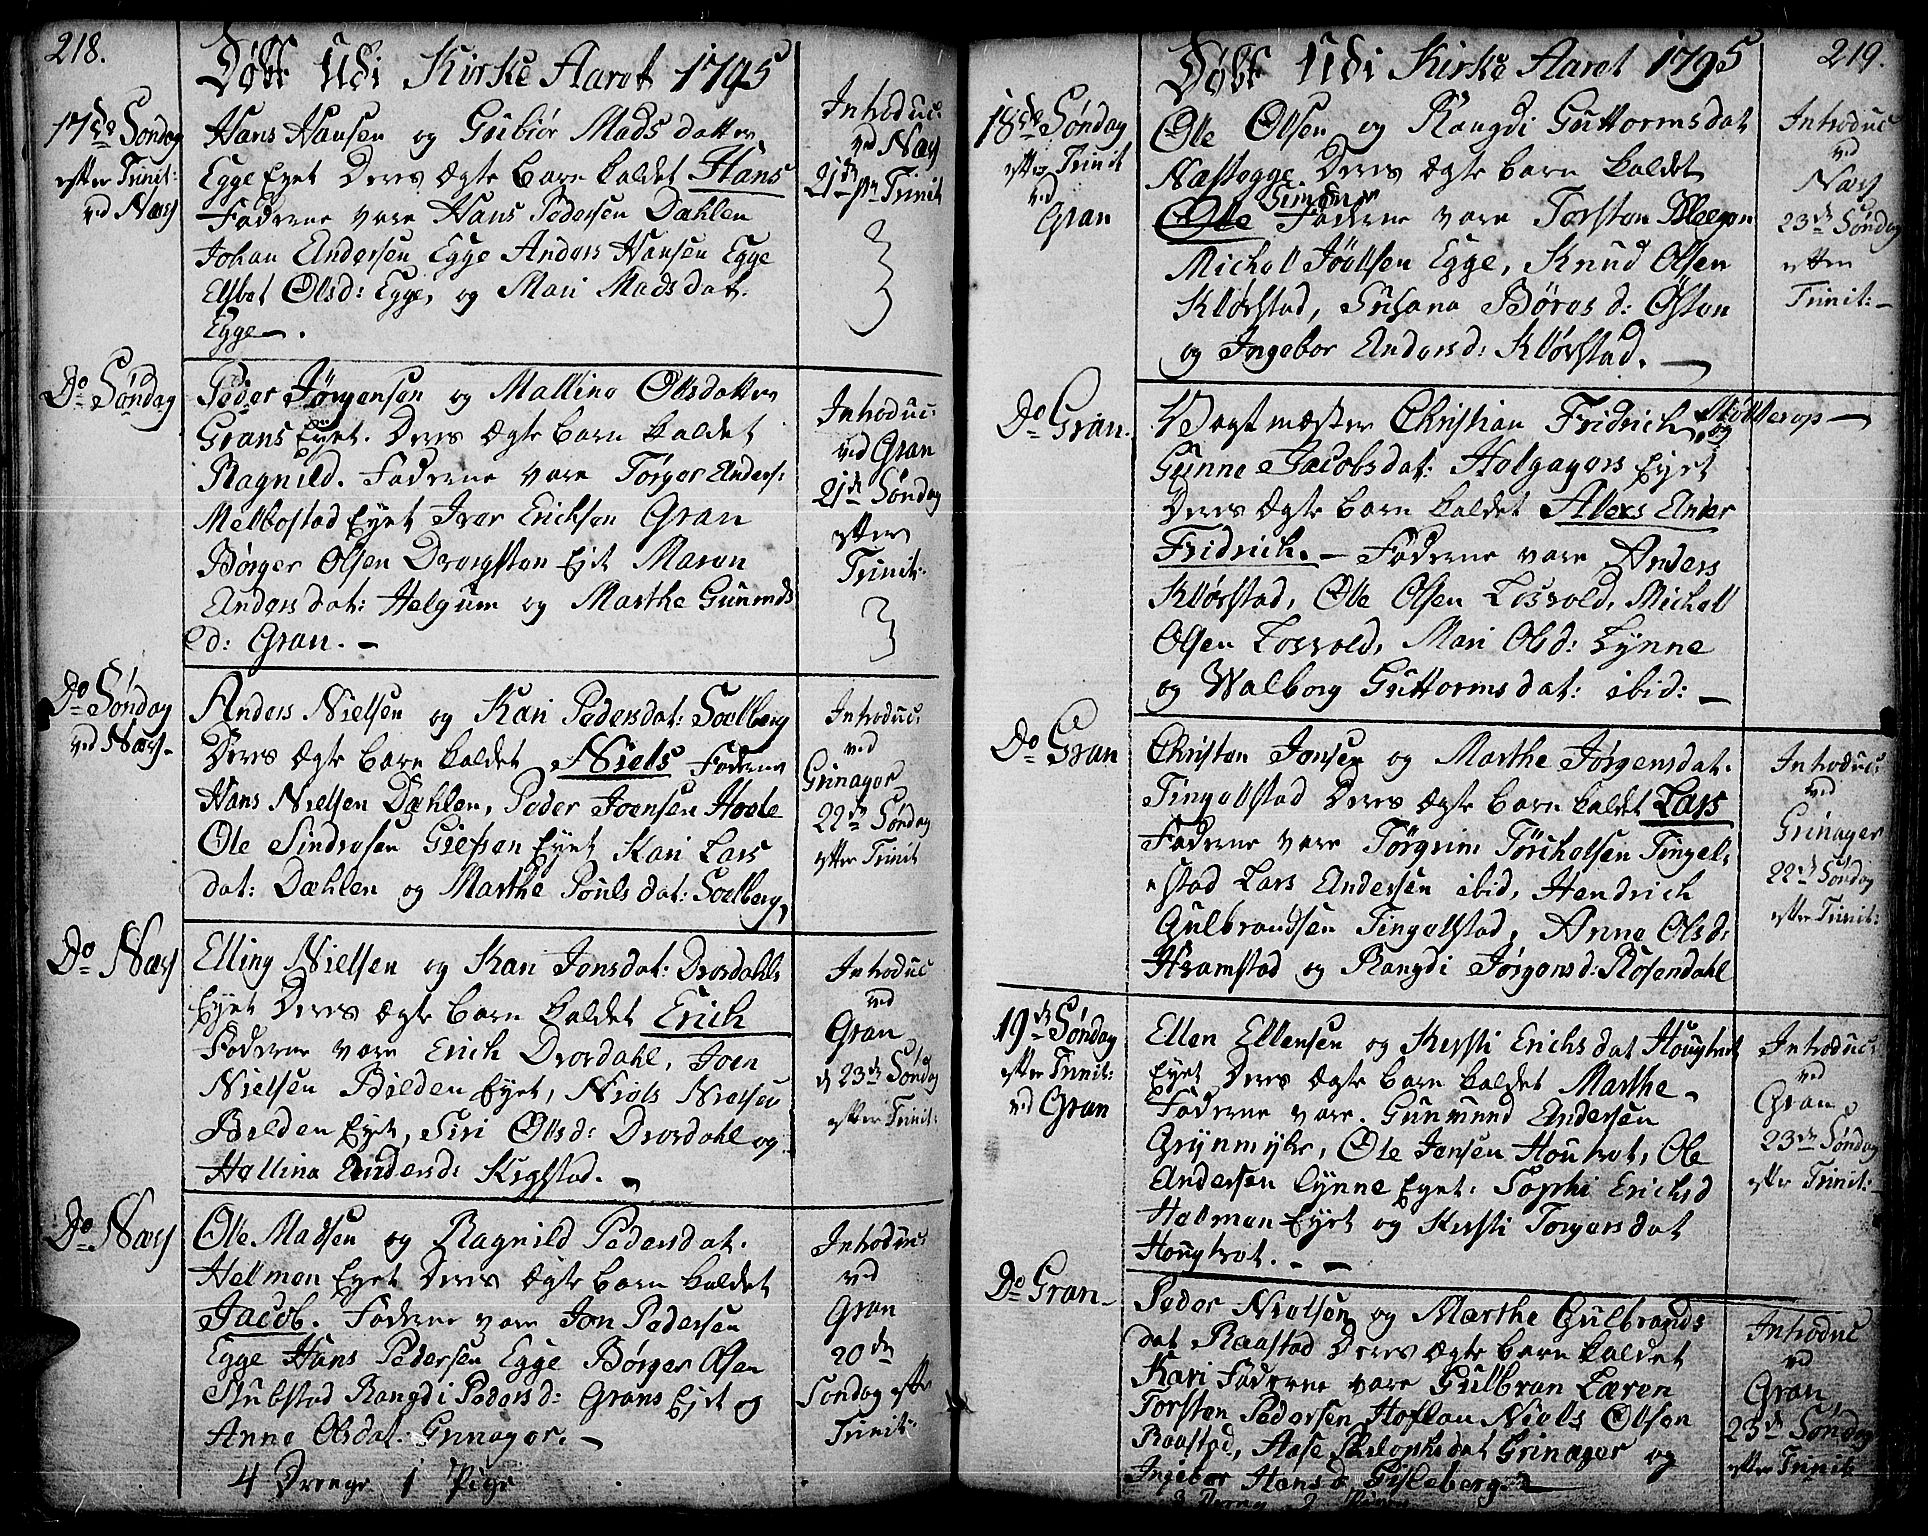 218.
Døbt Udi Kirke Aaret 1795
17de Søndag
efter Trinit:
ved Næss
Hans Hansen og Gubiør Mads datter
Egge Eyet Deres Ægte barn kaldet Hans
Fadderne vare Hans Pedersen Dahlen
Johan Andersen Egge Anders Hansen Egge
Elsbet Olsd: Egge, og Mari Madsdat.
Egge.
Introduc:
ved Næss
21de p. Trinit
Do Søndag
Peder Jørgensen og Malline Olsdatter
Grans Eyet. Deres Ægte barn kaldet
Ragnild. Fadderne vare Torger Anders:
Melbostad Eyet Iver Erichsen Gran
Børger Olsen Eyet Maren
Anders dat: Helgum og Marthe Gunmds
d: Gran.
Introduc:
ved Gran
21de Søndag
efter
Trinit:
Do Søndag
ved Næss.
Anders Nielsen og Kari Pedersdat: Soelberg
Deres Ægte barn kaldet Niels Fadderne
Hans Nielsen Dæhlen, Peder Joensen Hoele
Ole Sindresen Eyet Kari Lars
dat: Dæhlen og Marthe Povels dat: Soelberg,
Introduc:
ved
Grinager
22de Søndag
efter Trinit
Do Næss
Elling Nielsen og Kari Jonsdat: Drordahls
Eyet Deres Ægte barn kaldet Erich
Fadderne vare Erich Drordahl, Joen
Nielsen Bilden Eyet, Niels Nielsen
Bilden Eyet, Siri Olsd: Drordahl og
Hellina Andersd:
Introduc
ved
Gran
d 23de Søndag
efter Trinit:
Do Næss
Ole Madsen og Ragnild Pedersdat.
Helmen Eyet Deres Ægte barn kaldet
Jacob. Fadderne vare Jon Pedersen
Egge Hans Pedersen Egge Børger Olsen
Rangdi Pedersd: Grans Ejet og
Anne Olsdat. Grinager.
Introduc:
ved
Gran
20de
Søndag efter
Trinit:
4 Drenge 1 Pige
219.
Døbt Udi Kirke Aaret 1795
18de Søndag
efter Trinit
ved
Gran
Ole Olsen og Rangdi Guttormsdat
Deres Ægte barn kaldet
Simen
Ole Fadderne vare Torsten
Michell Jöelsen Egge, Knud Olsen
Kløvstad, Susana d: Østen
og Ingebor Andersd: Kløvstad.
Introduc
ved
Næss
23de Søndag
efter
Trinit:
Do Gran.
Vagtmæster Christian Fridrich og
Gunne Jacobsdat: Helgagers Eyet
Deres Ægte barn kaldet Ander
Fridrich. Fadderne vare Anders
Kløvstad, Ole Olsen Michell
Olsen Mari Olsd: Lynne
og Walborg Guttormsdat: ibid:
Do Gran
Christen Jonsen og Marthe Jørgensdat.
Tingelstad Deres Ægte barn kaldet Lars
Fadderne vare Törgrim Törchelsen Tingel:
stad Lars Andersen ibid, Hendrich
Gulbrandsen Tingelstad, Anne Olsd:
Hramstad og Rangdi Jørgensd: Rosendahl
Introduc:
ved
Grinager
22de Søndag
efter Trinit:
19de Søndag
efter Trinit:
ved Gran
Ellen Ellensen og Kersti Erichsdat
Eyet Deres Ægte barn kaldet Marthe
Fadderne vare. Gunmund Andersen
Grynmyhr, Ole Jensen Ole
Andersen Lynne Eyet. Sophi Erichsd
Helmen Eyet og Kersti Torgersdat
Introduc:
ved
Gran
23de Søndag
efter Trinit:
Do Gran
Peder Nielsen og Marthe Gulbrands
dat Raastad Deres Ægte barn kaldet
Kari Fadderne vare Gulbran Læren
Torsten Pedersen Niels Olsen
Raastad, Aase dat Grinager og
Ingebor Hansd Gisleberg.
Introduc
ved
Gran
23de Søndag
efter Trinit